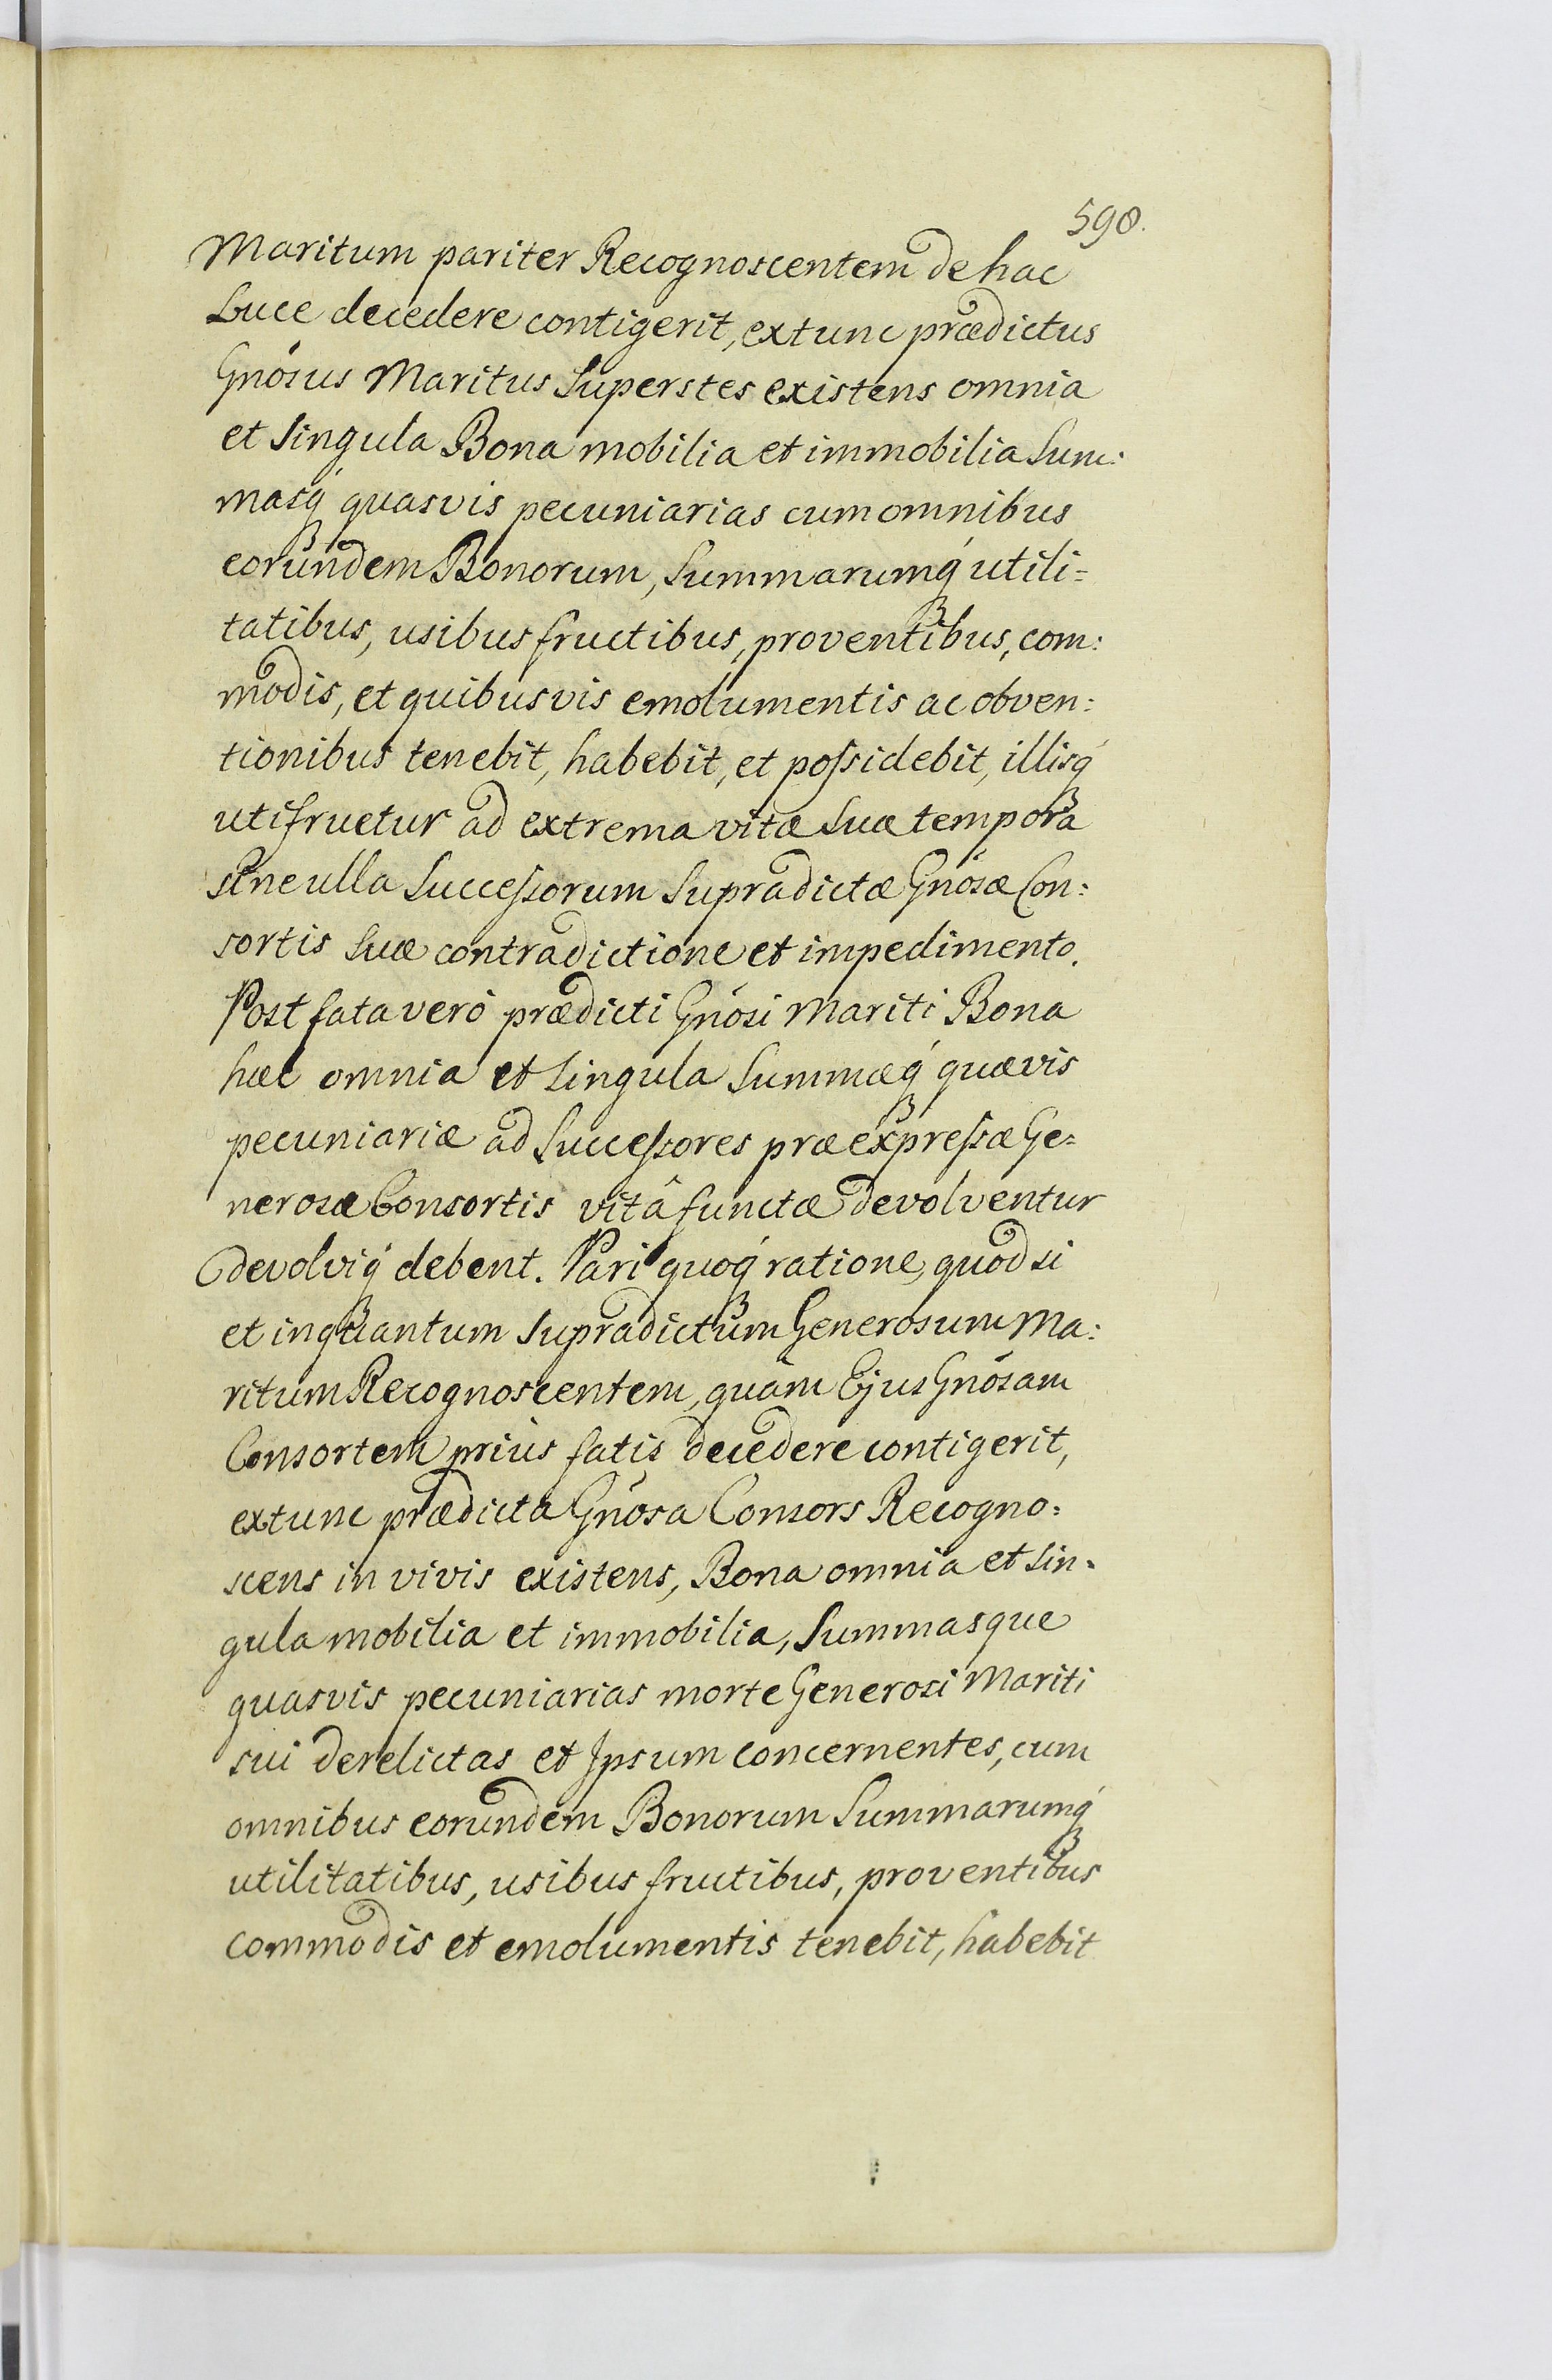 598.
Maritum pariter Recognoscentem de hac
Luce decedere contigerit, extunc prædictus
Gnõsus Maritus Superstes existens omnia
et Singula Bona mobilia et immobilia Sum:
masq́ quasvis pecuniarias cum omnibus
eorundem Bonorum, Summarumq́ utili=
tatibus, usibus fructibus, proventibus, com:
modis, et quibusvis emolumentis ac obven:
tionibus tenebit, habebit, et poſsidebit, illisq́
utifruetur ad extrema vitæ Suæ tempora
sine ulla Succeſsorum Supradictæ Gnõsæ Con:
sortis Suæ contradictione et impedimento.
Post fata verò prædicti Gnõsi Mariti Bona
hæc omnia et Singula Summæq́ quævis
pecuniariæ ad Succeſsores præexpreſsæ Ge=
nerosæ Consortis vitâ functæ devolventur
devolviq́ debent. Pari quoq́ ratione, quod si
et inquantum Supradictum Generosum Ma:
ritum Recognoscentem, quàm Ejus Gnõsam
Consortem priùs fatis decedere contigerit,
extunc prædicta Gnõsa Consors Recogno:
scens in vivis existens, Bona omnia et Sin=
gula mobilia et immobilia, Summasque
quasvis pecuniarias morte Generosi Mariti
sui derelictas et Ipsum concernentes, cum
omnibus eorundem Bonorum Summarumq́
utilitatibus, usibus fructibus, proventibus
commodis et emolumentis tenebit, habebit